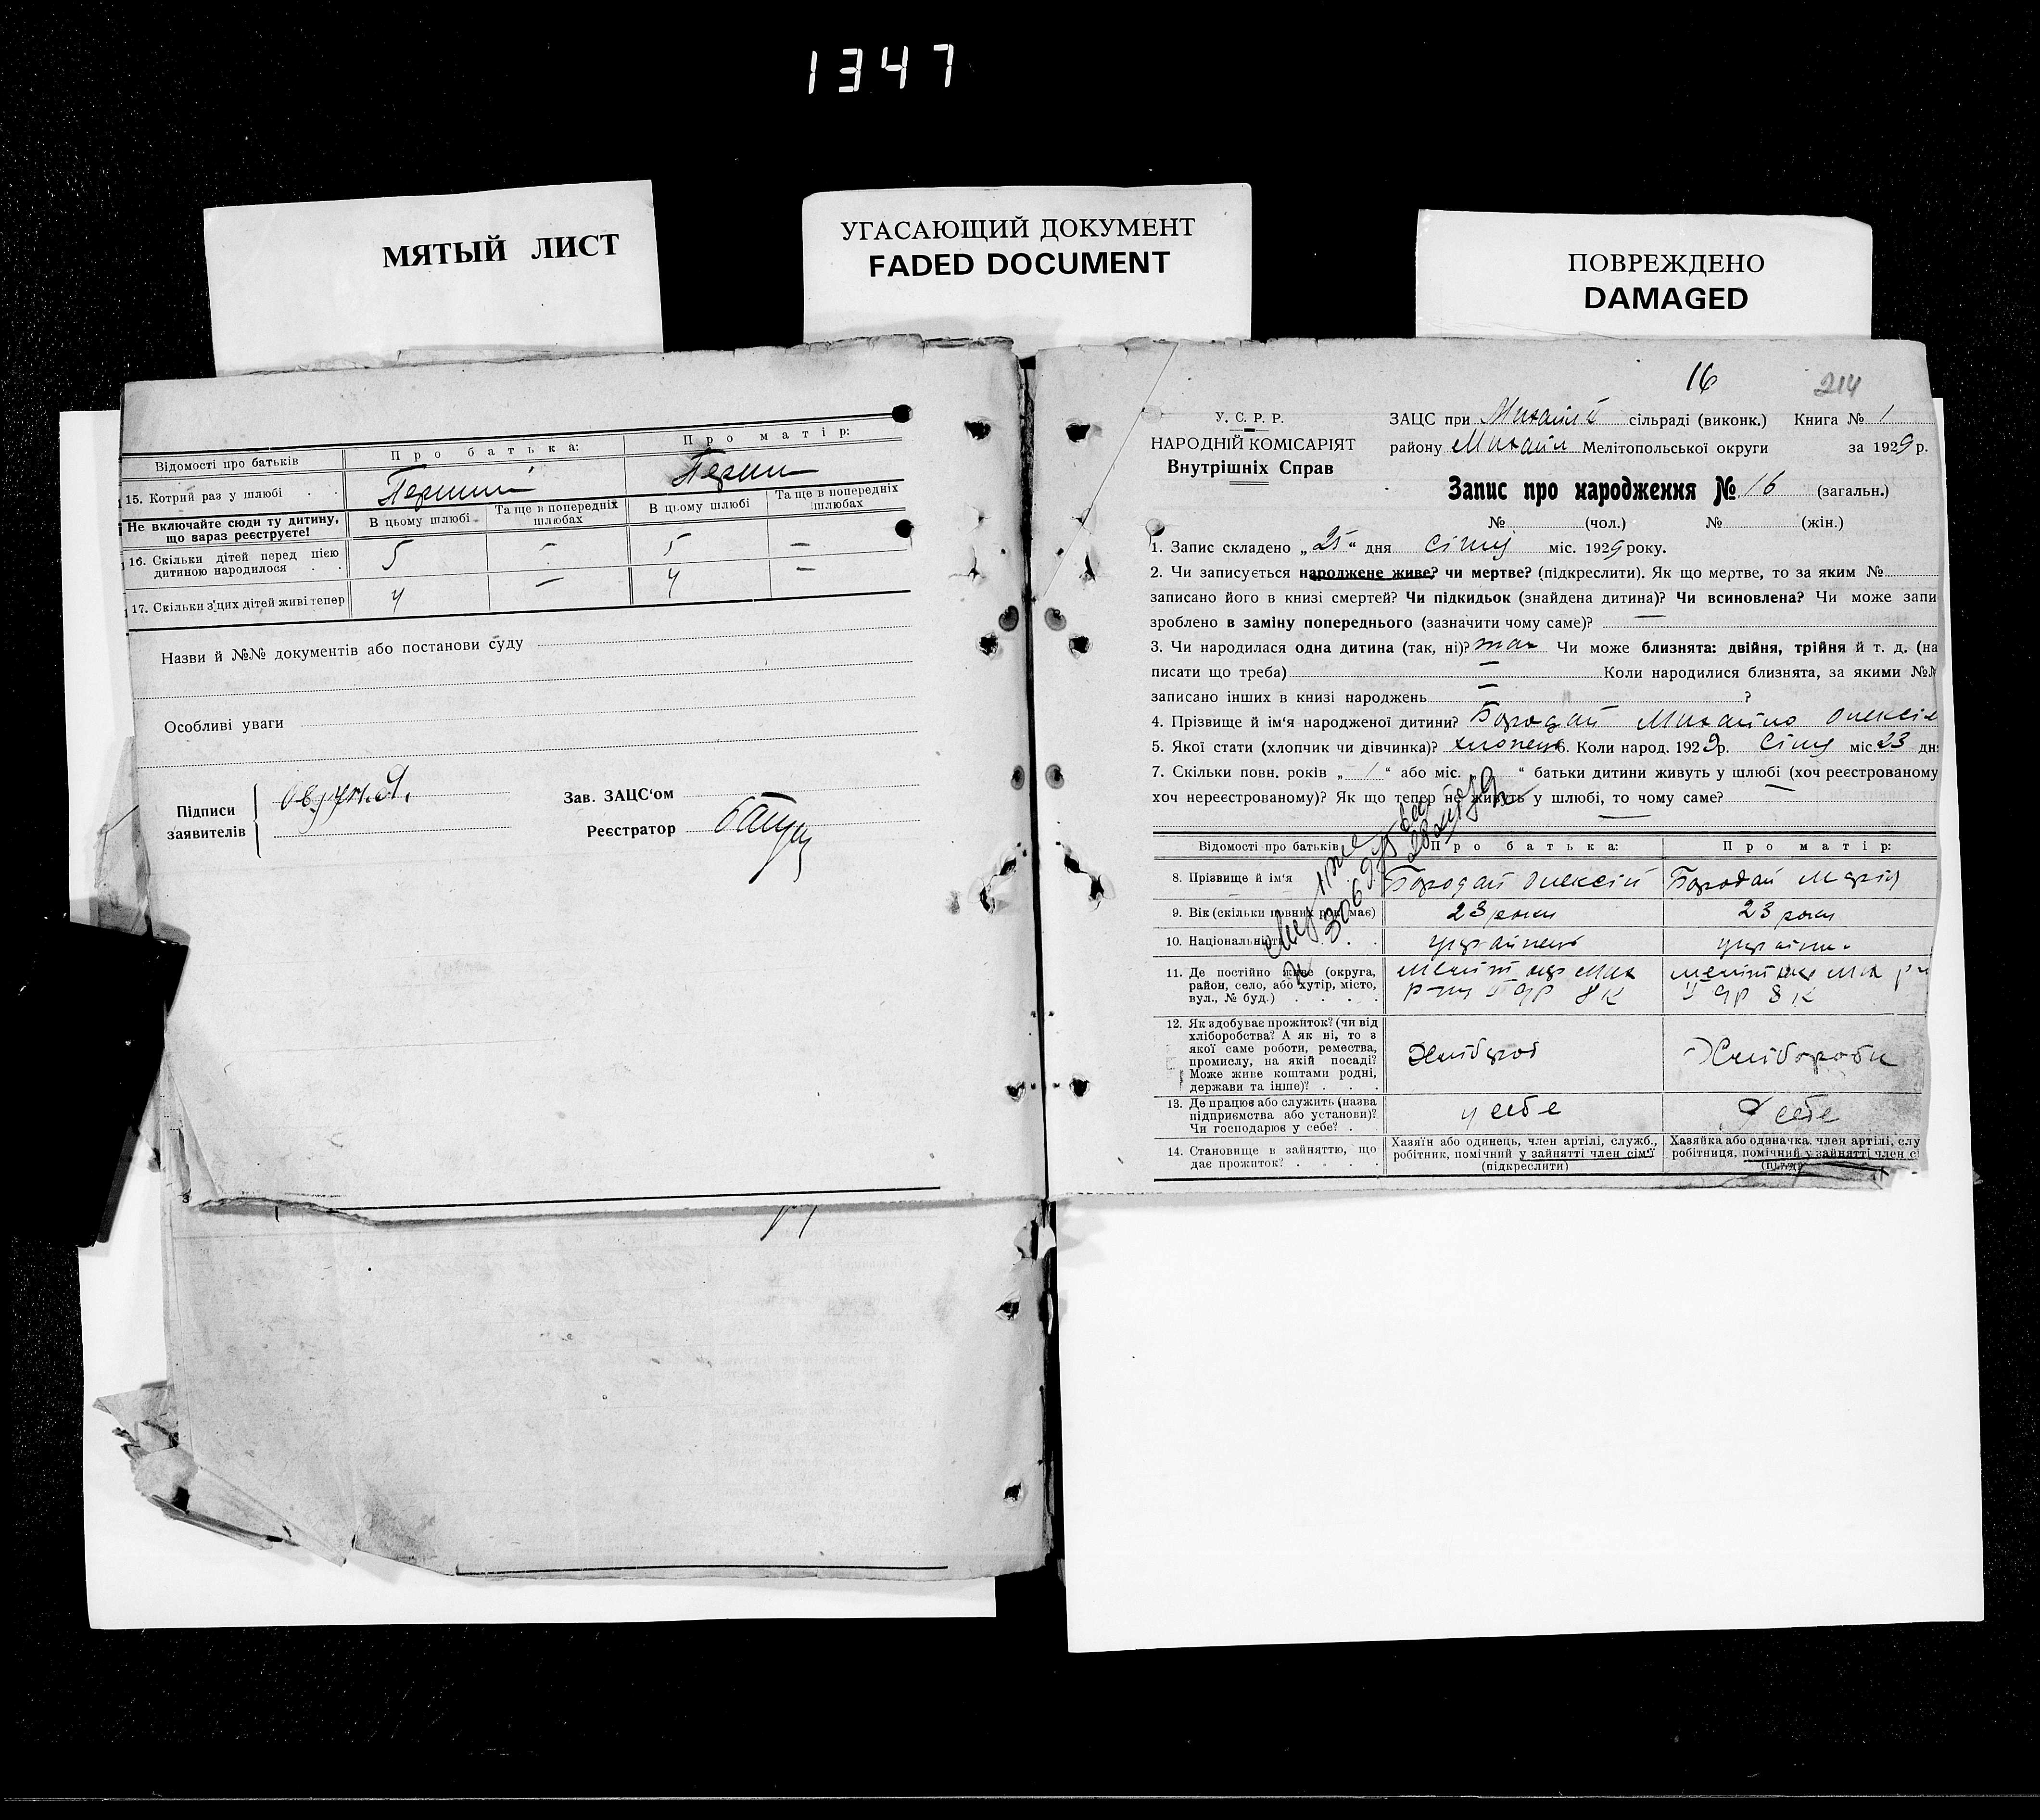 1347
МЯТЫЙ ЛИСТ
УГАСАЮЩИЙ ДОКУМЕНТ
FADED DOCUMENT
ПОВРЕЖДЕНО
DAMAGED
Відомості про батьків
Про батька:
Про матір:
15. Котрий раз у шлюбі . .
Перший
Перши
Не включайте сюди ту дитину, що вараз реєструєте!
В цьому шлюбі
Та ще в попередніх шлюбах
В цьому шлюбі
Та ще в попередніх шлюбах
16. Скільки дітей перед цією дитиною народилося . .
5 – 5 –
17. Скільки з'цих дітей живі тепер
4 – 4 –
Назви й №№ документів або постанови суду
Особливі уваги
Підписи заявителів
Зав. ЗАЦС'ом
Реєстратор
16
214
У. С. Р. Р.
НАРОДНІЙ КОМІСАРІЯТ
Внутрішніх Справ
ЗАЦС при сільраді (виконк.) Книга № 1
району Михайл Мелітопольської округи за 1929 р.
Запис про народження № 16 (загальн.)
№ (чол.) № (жін.)
1. Запис складено „25“ дня січня міс. 1929 року.
2. Чи записується народжене живе? чи мертве? (підкреслити). Як що мертве, то за яким №
записано його в книзі смертей? Чи підкидьок (знайдена дитина)? Чи всиновлена? Чи може запи
зроблено в заміну попереднього (зазначити чому саме)? —
3. Чи народилася одна дитина (так, ні)? так Чи може близнята: двійня, трійня й т. д. (на
писати що треба) — Коли народилися близнята, за якими №№
записано інших в книзі народжень — ?
4. Прізвище й ім'я народженої дитини? Бородай Михайло Олексів
5. Якої стати (хлопчик чи дівчинка)? хлопець 6. Коли народ. 1929 р. січня міс. 23 дн
7. Скільки повн. років „ 1 “ або міс. „ “ батьки дитини живуть у шлюбі (хоч реєстрованому
хоч нереєстрованому)? Як що тепер не живуть у шлюбі, то чому саме? —
Відомості про батьків
Про батька:
Про матір:
8. Прізвище й ім'я
Бородай Олексій
Бородай Марія
9. Вік (скільки повних рок. має)
23 роки
23 роки
10. Національність
українець
11. Де постійно живе (округа, район, село, або хутір, місто, вул., № буд.) . . . .
12. Як здобуває прожиток? (чи від хліборобства? А як ні, то з якої саме роботи, ремества, промислу, на якій посаді? Може живе коштами родні, держави та інше)? . . .
Хлібороб
Хлібороби
13. Де працює або служить (назва підприємства або установи)? Чи господарює у себе? .
у себе
У себе
14. Становище в зайняттю, що дає прожиток? . . . .
Хазяїн або одинець, член артілі, служб., робітник, помічний у зайнятті член сім'ї (підкреслити)
Хазяйка або одиначка. член артілі, слу робітниця, помічний у зайнятті член сі